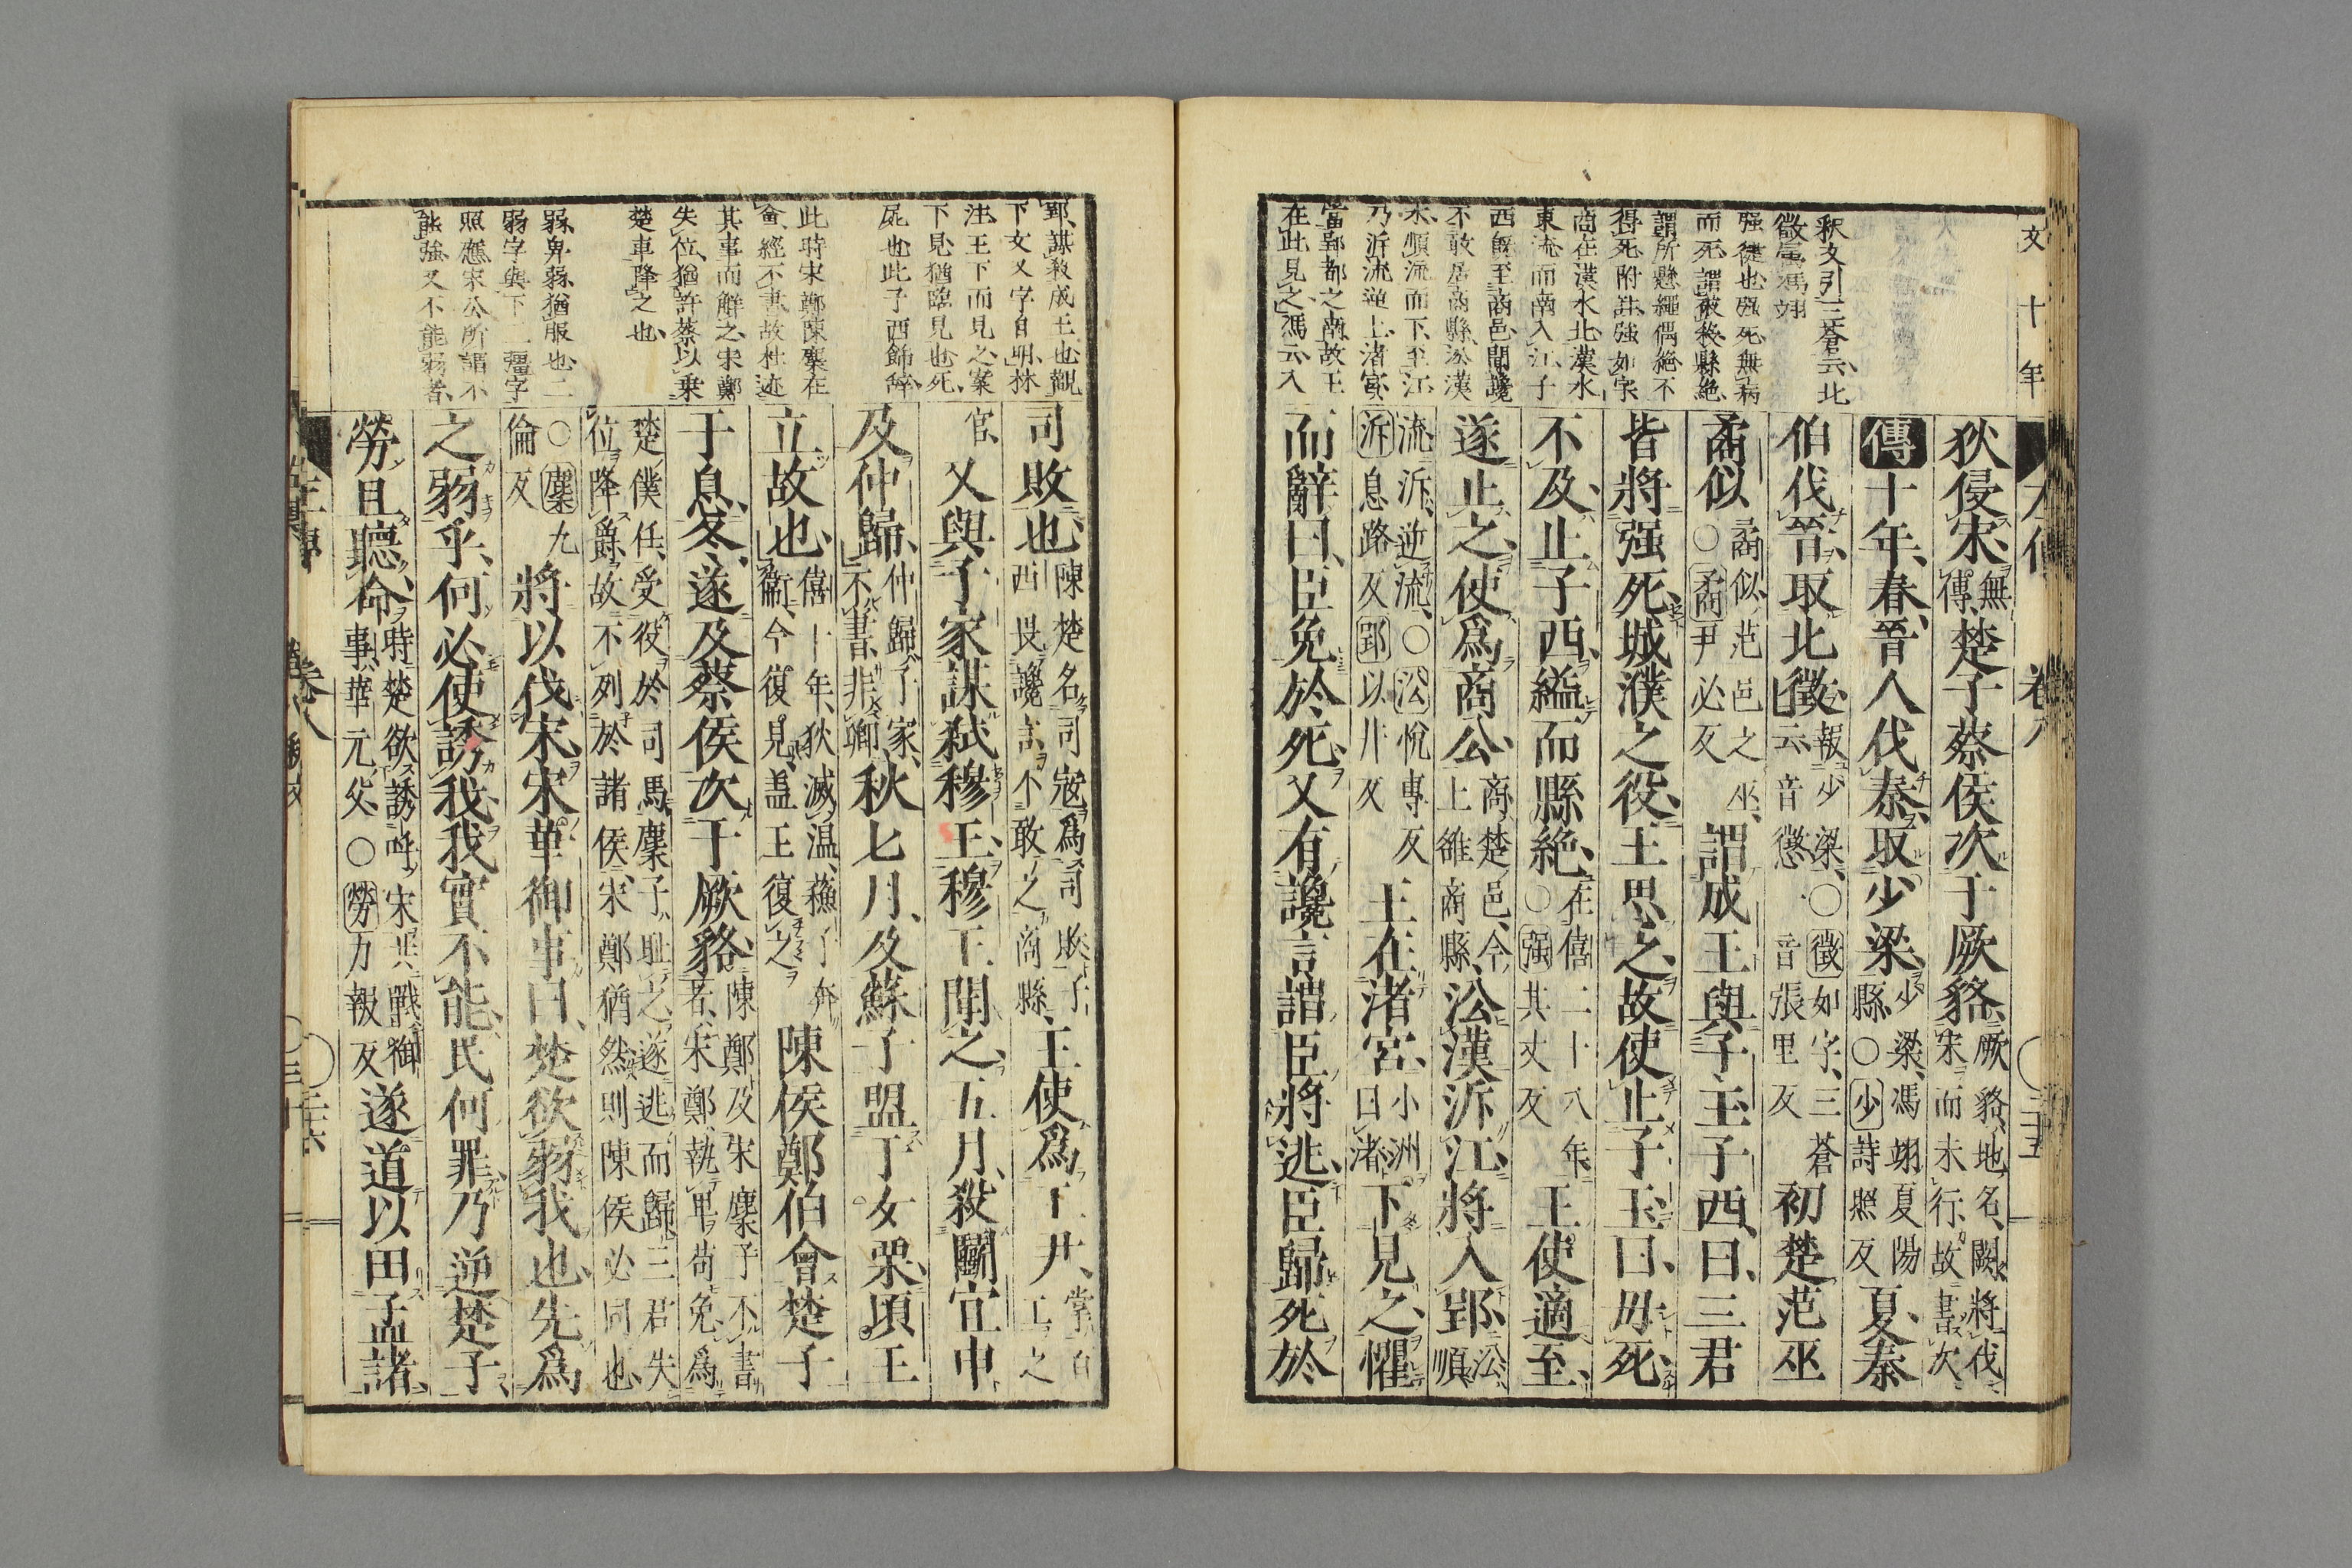 文十年
釈文引三蒼云、北
徴属馮翊
强健也、强死、無病
而死、謂被殺縣絶、
謂所懸繩偶絶不
得死、附註、強如字
商在漢水北、漢水
東流而南入江、子
西既至商邑、聞讒
不敢居商縣、沿漢
水、順流而下、至江
乃泝流逆上、渚宮、
當郢都之南、故王
在此見之、馮云、入
狄侵宋、無傳、楚子蔡侯次于厥貉、厥貉、地名、闕、將伐宋而未行、故書次
傳十年、春、晉人伐秦、取少梁、少梁、馮翊夏陽縣、○少詩照反夏、秦
伯伐晉、取北徵、報少梁、○徵如字、三蒼云、音懲、一音張里反初楚范巫
矞似矞似、范邑之巫、○矞尹必反謂成王與子玉子西、曰、三君
皆將强死、城濮之役、王思之、故使止子玉、曰、毋死、
不及、止子西、縊而縣絶、在僖二十八年、○强其丈反王使適至、
遂止之、使爲商公、商、楚邑、今上雒商縣、沿漢泝江、將入郢、沿、順
流、泝、逆流、○沿悅專反泝息路反郢以井反王在渚宮、小洲曰渚、下見之、懼
而辭曰、臣免於死、又有讒言謂臣將逃、臣歸死於
郢、謀殺成王也、觀
下文又字自明、林
注、王下而見之、案
下見、猶臨見也、死、
屍也、此子西飾辭
此時宋鄭陳麋在
會、經不書、故杜迹
其事而解之、宋鄭
失位、猶許蔡以乗
楚車降之也、
弱、卑弱、猶服也、二
弱字與下二彊字
照應、宋公所謂不
能強、又不能弱者、
司敗也、陳楚名司寇爲司敗、子西畏讒言、不敢之商縣王使爲工尹、掌百工之
官、又與子家謀弑穆王、穆王聞之、五月、殺鬬宜申
及仲歸、仲歸、子家、不書、非卿秋七月、及蘇子盟于女栗、頃王
立故也、僖十年、狄滅溫、蘇子奔衞、今復見、蓋王復之陳侯鄭伯會楚子
于息、冬、遂及蔡侯次于厥貉、陳鄭及宋麋子不書者、宋鄭、執卑苟免、爲
楚僕任、受役於司馬、麋子、恥之、遂逃而歸、三君失位降爵、故不列於諸侯、宋鄭猶然、則陳侯必同也、
○麇九倫反將以伐宋、宋華御事曰、楚欲弱我也、先爲
之弱乎、何必使誘我、我實不能、民何罪、乃逆楚子、
勞且聽命、時楚欲誘呼宋共戰、御事、華元父、○勞力報反遂道以田孟諸、